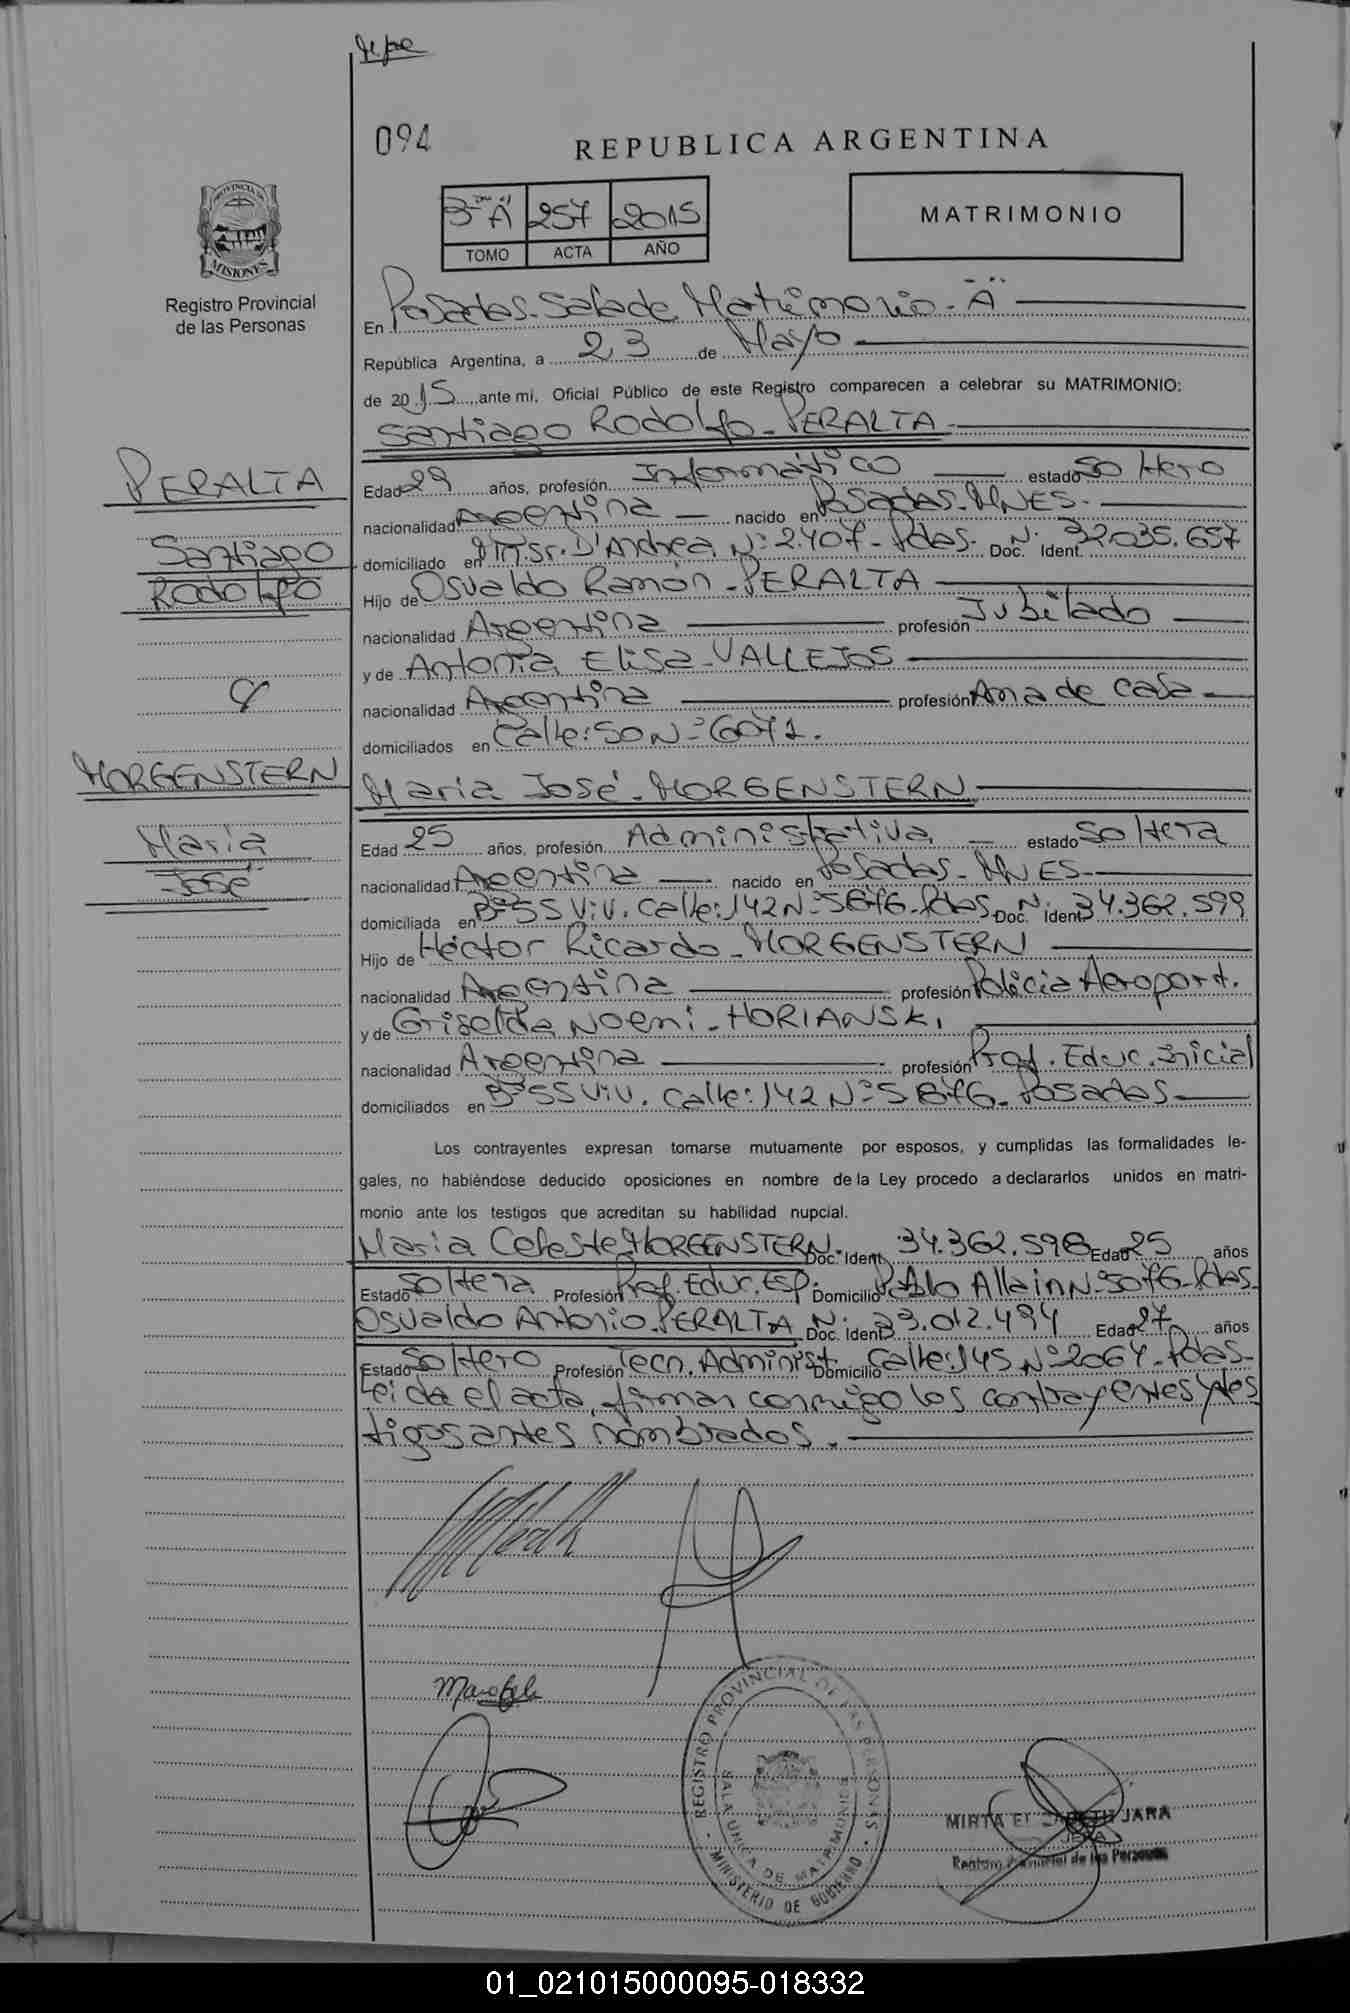 094
REPUBLICA ARGENTINA
3º "A" 257 2015
TOMO ACTA AÑO
MATRIMONIO
PROVINCIA DE MISIONES
Registro Provincial
de las Personas
En Posadas - Sala de Matrimonio - "A"
República Argentina, a 23 de Mayo
de 2015, ante mi, Oficial Público de este Registro comparecen a celebrar su MATRIMONIO:
Santiago Rodolfo - PERALTA
PERALTA
Santiago
Rodolfo
Edad 29 años, profesión Informático estado Soltero
nacionalidad Argentina nacido en Posadas - MNES.
domiciliado en D'Andrea Nº 2407 - Pdas. Doc. Nº Ident. 32.035.657
Hijo de Osvaldo Ramón - PERALTA
nacionalidad Argentina profesión Jubilado
y de Antonia Elisa - VALLEJOS
nacionalidad Argentina profesión Ama de casa
domiciliados en Calle: 50 Nº 6071.
y
MORGENSTERN
María
José
María José - MORGENSTERN
Edad 25 años, profesión Administrativa estado Soltera
nacionalidad Argentina nacido en Posadas - MNES
domiciliada en Bº 55 Viv. Calle: 142 Nº 5876 - Pdas. Doc. Nº Ident. 34.362.599
Hijo de Héctor Ricardo - MORGENSTERN
nacionalidad Argentina profesión Policia Aeroport.
y de Griselda Noemi - HORIANSKI
nacionalidad Argentina profesión Prof. Educ. Inicial
domiciliados en Bº 55 Viv. Calle: 142 Nº 5876 - Posadas
Los contrayentes expresan tomarse mutuamente por esposos, y cumplidas las formalidades le-
gales, no habiéndose deducido oposiciones en nombre de la Ley procedo a declararlos unidos en matri-
monio ante los testigos que acreditan su habilidad nupcial.
María Celeste MORGENSTERN Doc. Ident. 34.362.598 Edad 25 años
Estado Soltera Profesión Prof. Educ. Esp. Domicilio Pablo Allain Nº 5076 - Pdas.
Osvaldo Antonio - PERALTA Nº Doc. Ident. 33.012.494 Edad 27 años
Estado Soltero Profesión Tecn. Administ. Domicilio Calle: 145 Nº 2064 - Pdas -
Leida el acta, firman conmigo los contrayentes y tes
tigos antes nombrados.
REGISTRO PROVINCIAL DE LAS PERSONAS
SALA UNICA DE MATRIMONIOS
MINISTERIO DE GOBIERNO
MIRTA JARA
JEFA
Registro Provincial de las Personas
01_021015000095-018332